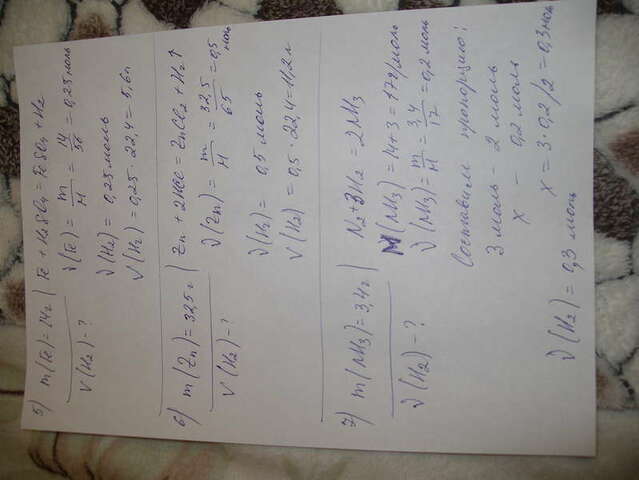 5) m(Fe)=14г | Fe + H2SO4 = FeSO4 + H2
V(H2) - ? ν(Fe) = m/M = 14/56 = 0,25 моль
ν(H2) = 0,25 моль
V(H2) = 0,25 · 22,4 = 5,6л
6) m(Zn) = 32,5 г | Zn + 2HCl = ZnCl2 + H2↑
V(H2) - ? ν(Zn) = m/M = 32,5/65 = 0,5 моль
ν(H2) = 0,5 моль
V(H2) = 0,5 · 22,4 = 11,2 л
7) m(NH3) = 3,4г | N2 + 3H2 = 2NH3
ν(H2) - ? M(NH3) = 14+3 = 17г/моль
ν(NH3) = m/M = 3,4/17 = 0,2 моль
Составим пропорцию:
3 моль - 2 моль
x - 0,2 моль
x = 3 · 0,2/2 = 0,3 моль
ν(H2) = 0,3 моль